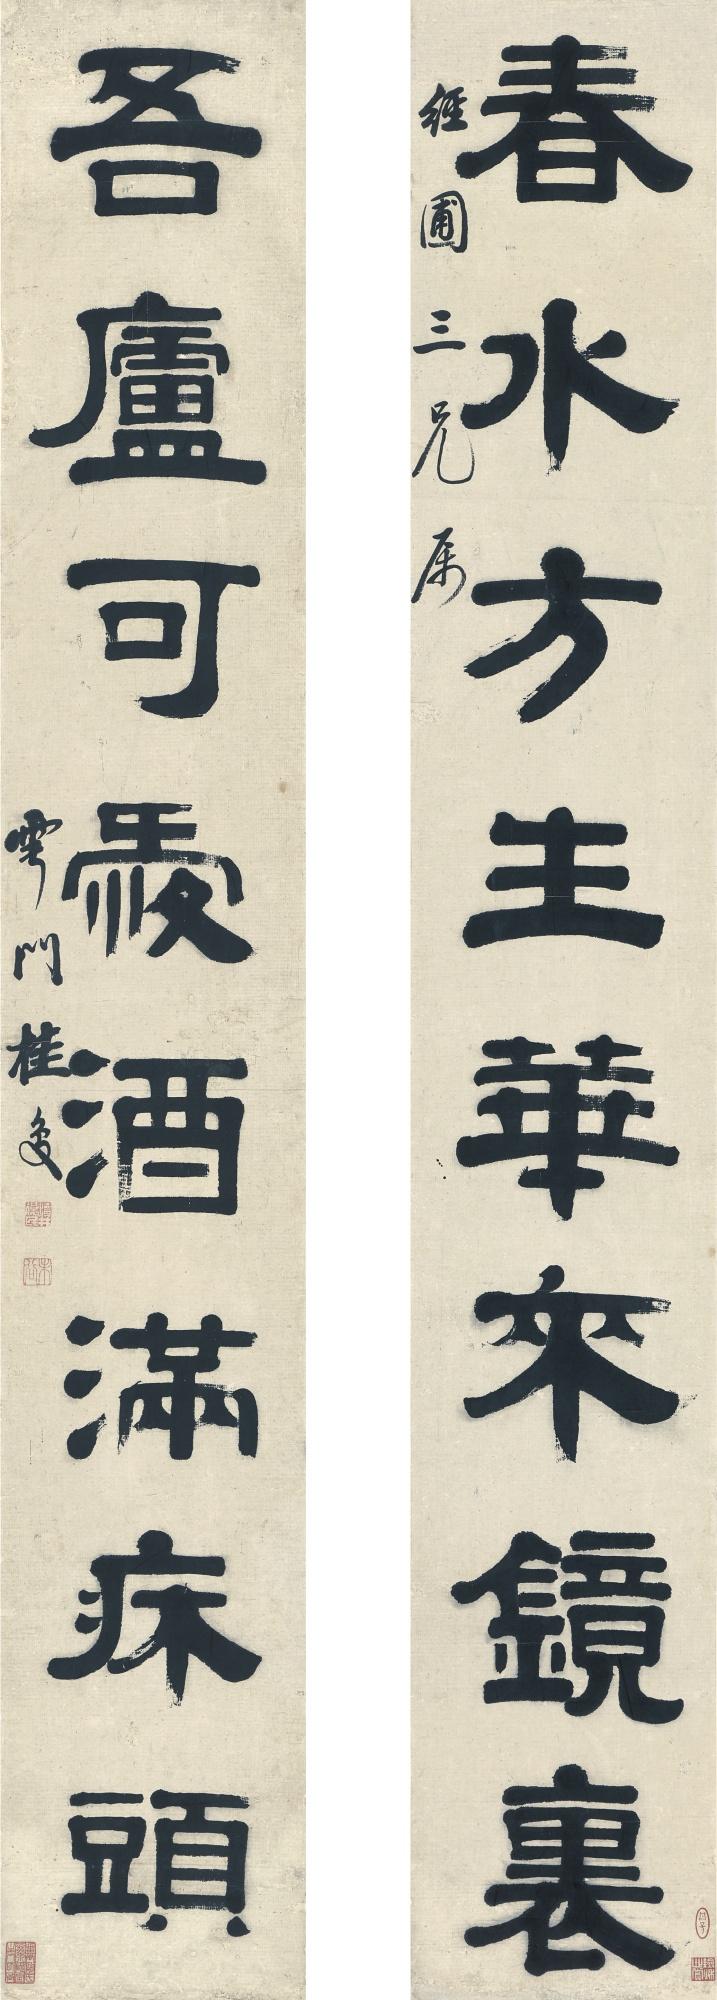 春水方生華來鏡裏
經圃三兄屬
吾廬可愛酒滿床頭
雩門桂馥